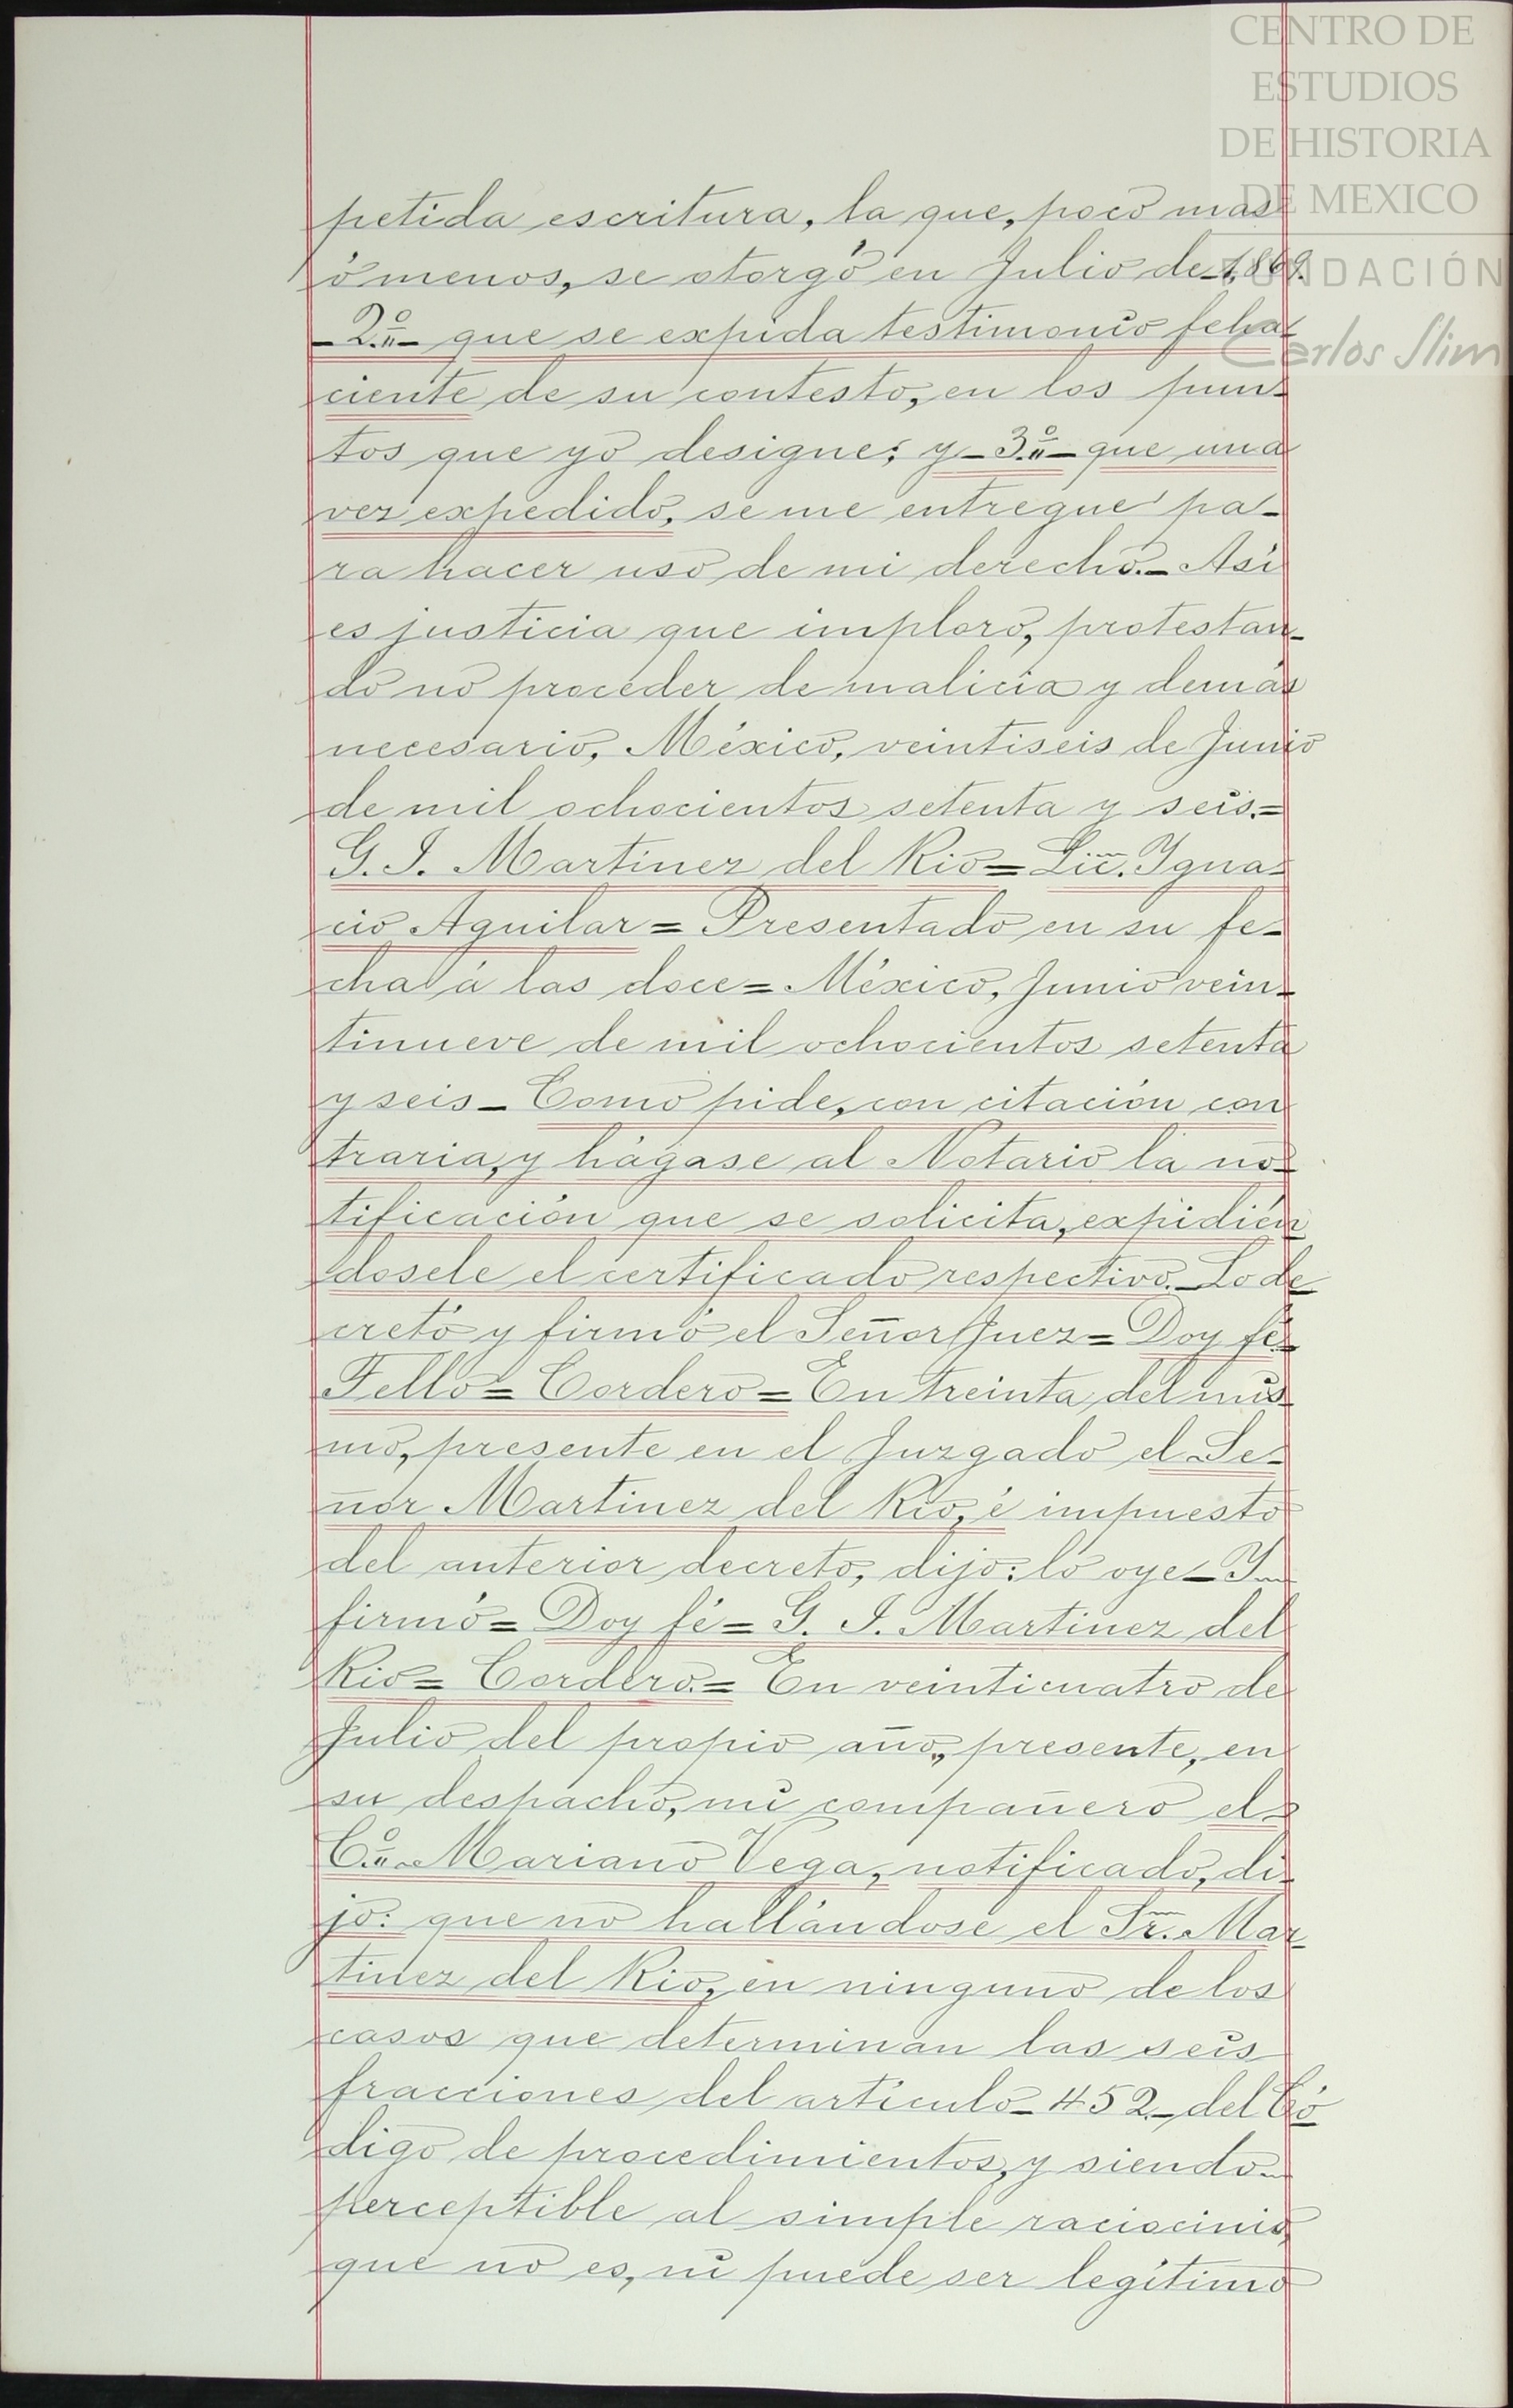 CENTRO DE
ESTUDIOS
DE HISTORIA
DE MEXICO
FUNDACIÓN
Carlos Slim
petida escritura, la que, poco mas
ó menos, se otorgó en Julio de 1,869.
_2.º_ que se expida testimonio feha-
ciente de su contesto, en los pun-
tos que yo designe; y _3.º_ que una
vez expedido, se me entregue pa-
ra hacer uso de mi derecho._ Asi
es justicia que imploro, protestan-
do no proceder de malicia y demás
necesario, México, veintiseis de Junio
de mil ochocientos setenta y seis.=
G. I. Martinez del Rio= Lic. Igna-
cio Aguilar = Presentado en su fe-
cha á las doce = México, Junio vein-
tinueve de mil ochocientos setenta
y seis _ Como pide, con citación con
traria, y hágase al Notario la no-
tificación que se solicita, expidién
dosele el certificado respectivo._ Lo de
cretó y firmó el Señor Juez= Doy fé=
Tello= Cordero = En treinta del mis-
mo, presente en el Juzgado el Se-
ñor Martinez del Rio, é impuesto
del anterior decreto, dijo: lo oye_ Y
firmó = Doy fé = G. I. Martinez del
Rio = Cordero.= En veinticuatro de
Julio del propio año, presente, en
su despacho, mi compañero el
C.º Mariano Vega, notificado, di-
jo: que no hallándose el Sr. Mar-
tinez del Rio, en ninguno de los
casos que determinan las seis
fracciones del artículo _452_ del Có
digo de procedimientos, y siendo
perceptible al simple raciocinio,
que no es, ni puede ser legítimo